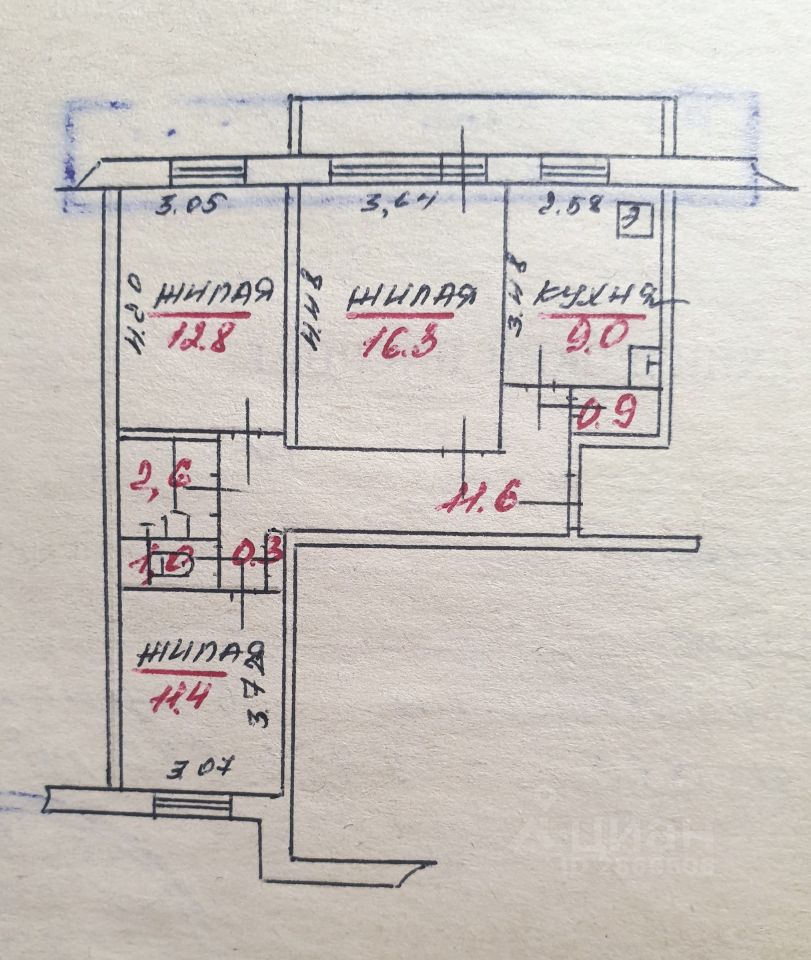 3.05
3,64
2.58
Э
4.20
ЖИЛАЯ
12.8
4.48
ЖИЛАЯ
16.3
3.48
КУХНЯ
9.0
Т
0.9
2,6
11.6
0.3
ЖИЛАЯ
11.4
3.72
3.07
ЦИАН